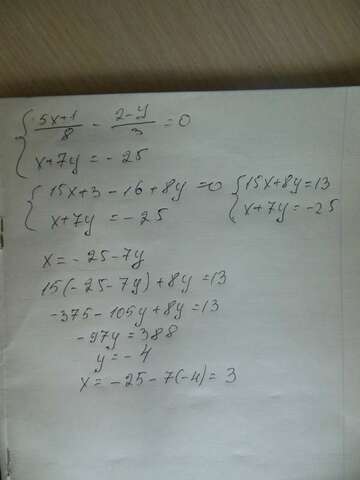 { (5x+1)/8 - (2-y)/3 = 0
x+7y = -25
{ 15x+3-16+8y=0 { 15x+8y=13
x+7y = -25 x+7y=-25
x = -25-7y
15(-25-7y)+8y=13
-375-105y+8y=13
-97y=388
y=-4
x = -25-7(-4)=3